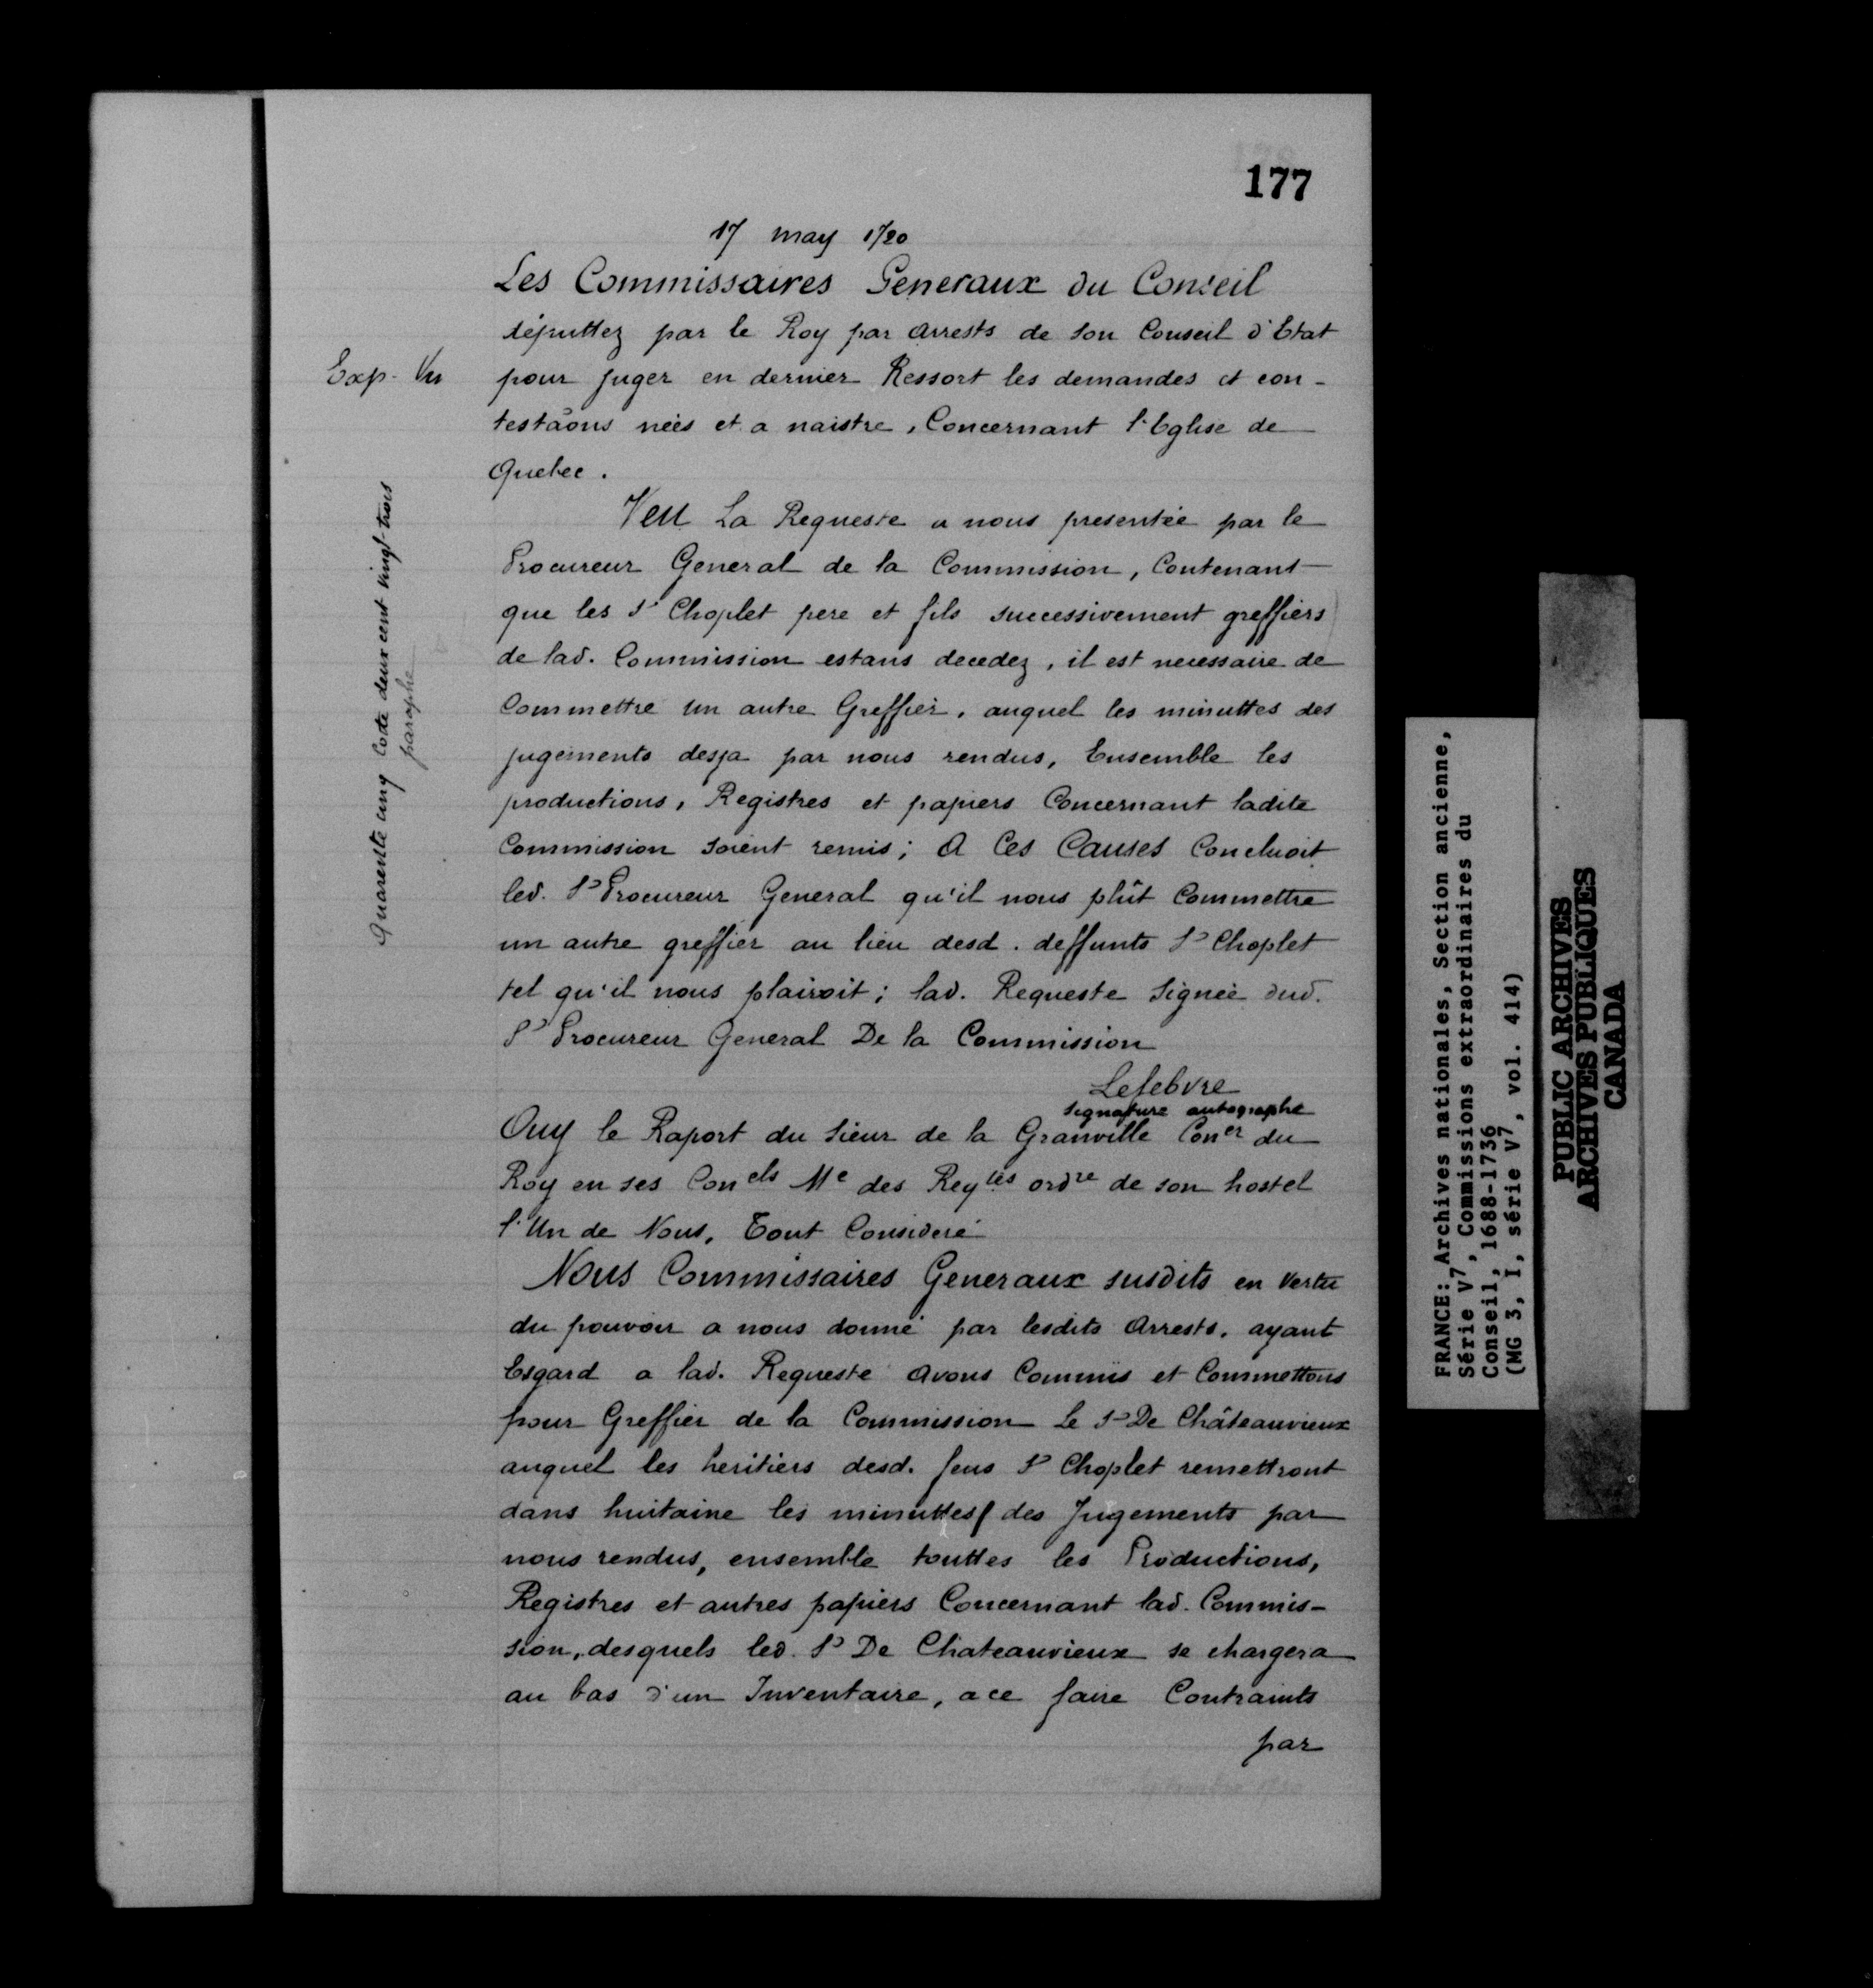 177
17 may 1720
Les Commissaires Generaux du Conseil
députtez par le Roy par arrests de son Conseil d'Etat
Exp. Vu
pour juger en dernier Ressort les demandes et con-
testãons nées et a naistre, Concernant l'Eglise de
Quebec.
Quarente cinq Cotte deux cent vingt-trois
paraphe
Veu La Requeste a nous presentée par le
Procureur General de la Commission, Contenant
que les Sr Choplet pere et fils successivement greffiers
de lad. Commission estans decedez, il est necessaire de
Commettre un autre Greffier, auquel les minuttes des
jugements desja par nous rendus, Ensemble les
productions, Registres et papiers Concernant ladite
Commission soient remis; A Ces Causes Concluoit
led. Sr Procureur General qu'il nous plût Commettre
un autre greffier au lieu desd. deffunts Sr Choplet
tel qu'il nous plairoit; lad. Requeste Signée dud.
Sr Procureur General De la Commission
Lefebvre
signature autographe
Ouy le Raport du Sieur de la Granville Coner du
Roy en ses Conels Me des Reqtes ordre de son hostel
l'Un de Nous, Tout Consideré
Nous Commissaires Generaux susdits en Vertu
du pouvoir a nous donné par lesdits Arrests, ayant
Esgard a lad. Requeste avons Commis et Commettons
pour Greffier de la Commission Le Sr De Châteauvieux
auquel les heritiers desd. feus Sr Choplet remettront
dans huitaine les minuttes des Jugements par
nous rendus, ensemble touttes les Productions,
Registres et autres papiers Concernant lad. Commis-
sion, desquels led. Sr De Chateauvieux se chargera
au bas d'un Inventaire, a ce faire Contraints
par
FRANCE: Archives nationales, Section ancienne,
Série V7, Commissions extraordinaires du
Conseil, 1688-1736
(MG 3, I, série V7, vol. 414)
PUBLIC ARCHIVES
ARCHIVES PUBLIQUES
CANADA